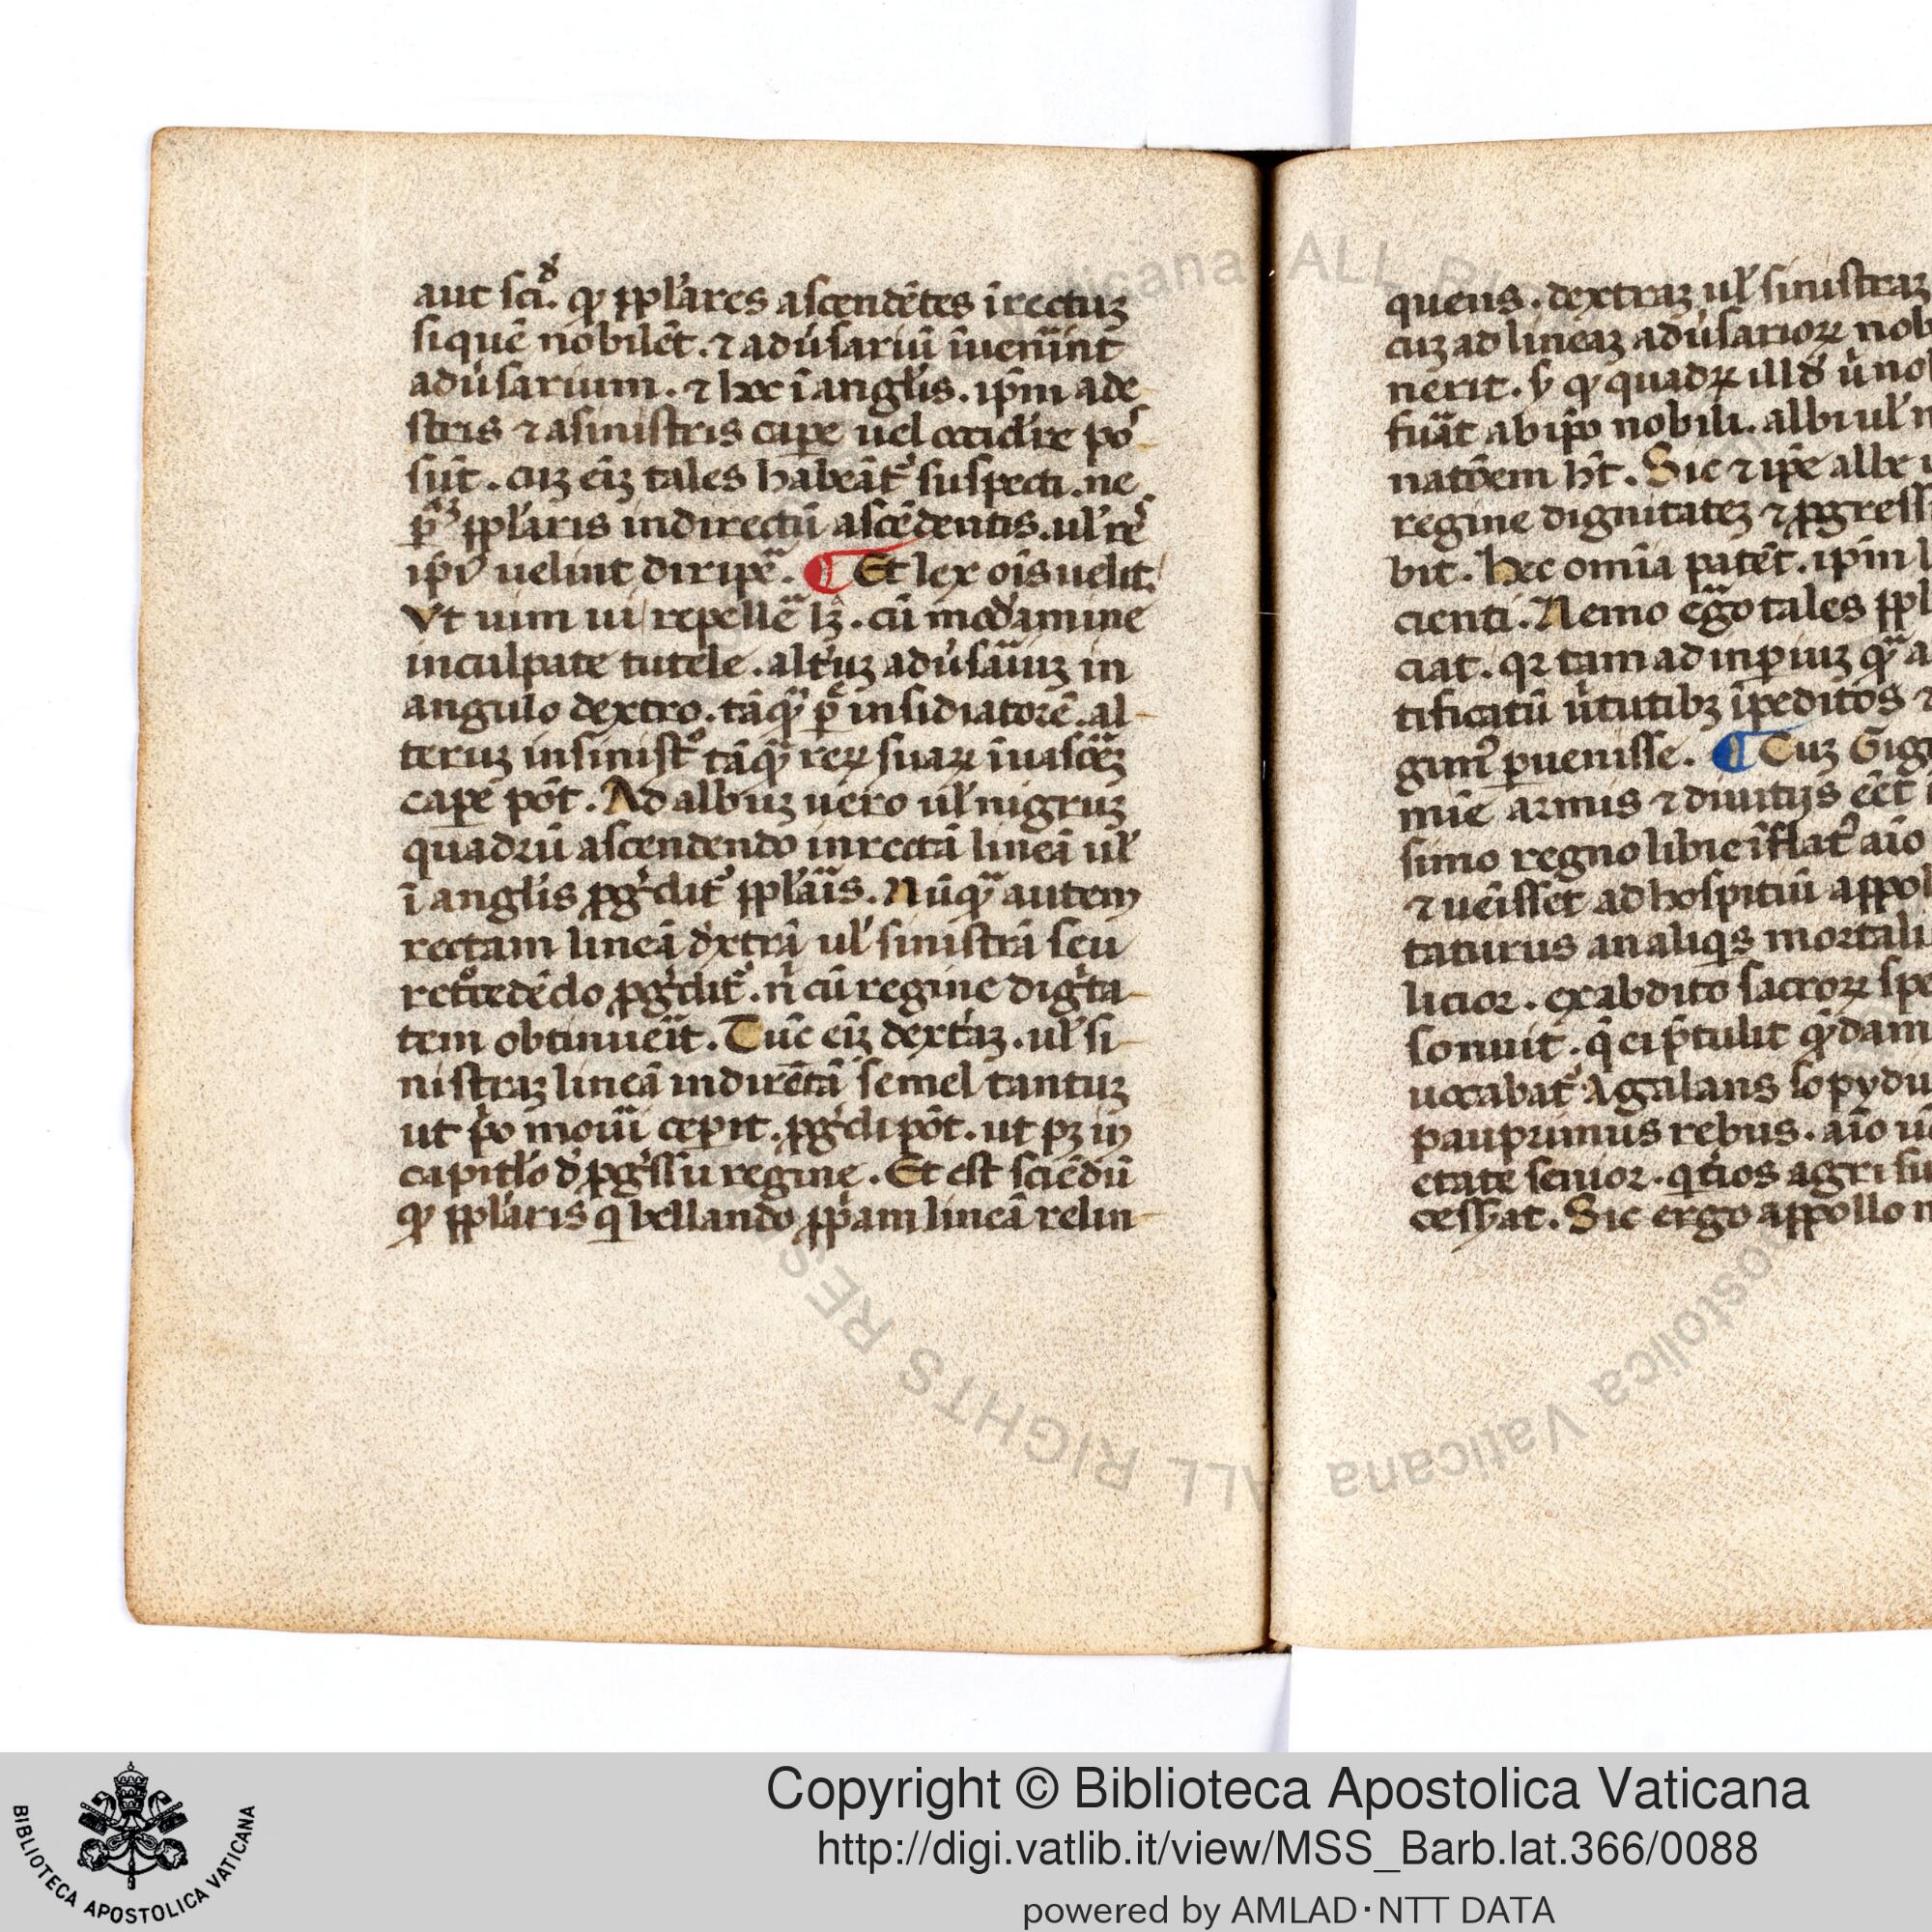 aut sci.᷒ ꝙ ppl'ares ascendẽtes ĩ rectuꝫ
si quẽ nobilẽt. ⁊ adũsariũ ĩuenĩnt
adũsarium. ⁊ hec ĩ angľis. ip̃m a de
stris ⁊ a sinistris cape uel occid'e po
sũt. cuꝫ eiꝫ tales habeãt᷒ suspecti. ne
ppl'aris in directũ ascẽdentis. ul' rẽ
uelint diripẽ. ¶ Et lex oĩs uelit
Vt uim ui repellẽ lꝫ. cũ mod'amine
inculpate tutele. alt'uꝫ adũsãuꝫ in
angulo dextro. tãꝙ̃ ꝑ insidiatorẽ. al-
teruꝫ in sinist᷒ tãꝙ̃ reꝝ suaꝝ ĩuasoreꝫ
capẽ põt. Ad albuꝫ uero ul' nigruꝫ
quadrũ ascendendo in rectã lineã ul'
ĩ angľis ꝓg'dit᷒ ppl'ãis. Nũꝙ̃ autem
rectam lineã d'xtrã ul' sinistrã seu
ret°cedẽdo ꝓg'dit᷒. ñ cũ regine dig'ta-
tem obtinueĩt. Tũc eiꝫ dext'aꝫ. ul' si-
nistraꝫ lineã indirẽtã semel tantuꝫ
ut p'o moũi cepit. ꝓg'di põt. ut pꝫ in
capitľo d' ꝓg'ssu regine. Et est sciẽdũ
ꝙ ppl'aris q bellando ꝓpam lineã relin-
quens. dextraꝫ ul' sinistraꝫ
cuꝫ ad lineaꝫ adũsarioꝝ nob
nerit. ꝙ quadꝝ illd' ũ no
fũat ab ip̃o nobili. albi ul' n
natõem h̃t. Sic ⁊ ip̃e albe
regine dignitateꝫ ⁊ ꝓgress
bit. Hec omĩa patẽt. ip̃m
cienti. Nemo eg̃o tales ppl
ciat. qꝛ tam ad inperiuꝫ ꝙ̃ a
tificatũ ũtutibꝫ ĩpeditos ⁊
gun᷒ ꝑuenisse. ¶ Cuꝫ Gig
mie armis ⁊ diuitijs eẽt
simo regno libie ĩflat᷒ aĩo
⁊ uẽisset ad hospitiũ appol
taturus an aliqs mortali
licior. ex abdito sacroꝝ spe
sonuit. q̃ ei p̃tulit q̃dam
uocabat᷒ Agalaus sopydu
pauprimus rebus. aĩo u
etate senior. q t'ios agri su
cess'at. Sic ergo appollo n
Copyright © Biblioteca Apostolica Vaticana
http://digi.vatlib.it/view/MSS_Barb.lat.366/0088
powered by AMLAD·NTT DATA
BIBLIOTECA APOSTOLICA VATICANA